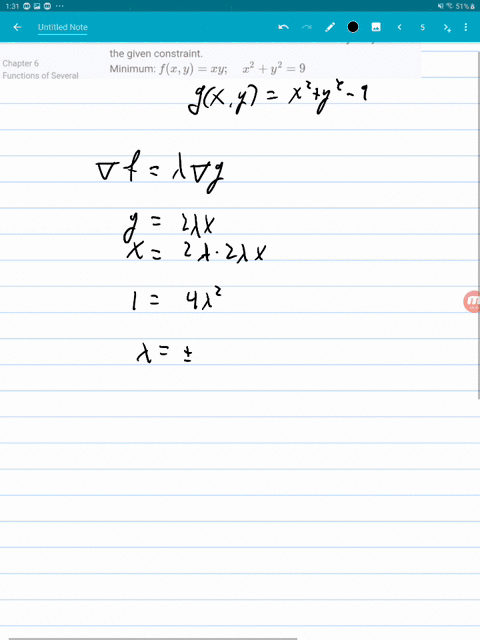 1:31 ... 51%
Untitled Note 5
Chapter 6
Functions of Several
the given constraint.
Minimum: f(x, y) = xy; x² + y² = 9
g(x, y) = x² + y² - 9
∇f = λ∇g
y = 2λx
x = 2λ · 2λx
1 = 4λ²
λ = ±